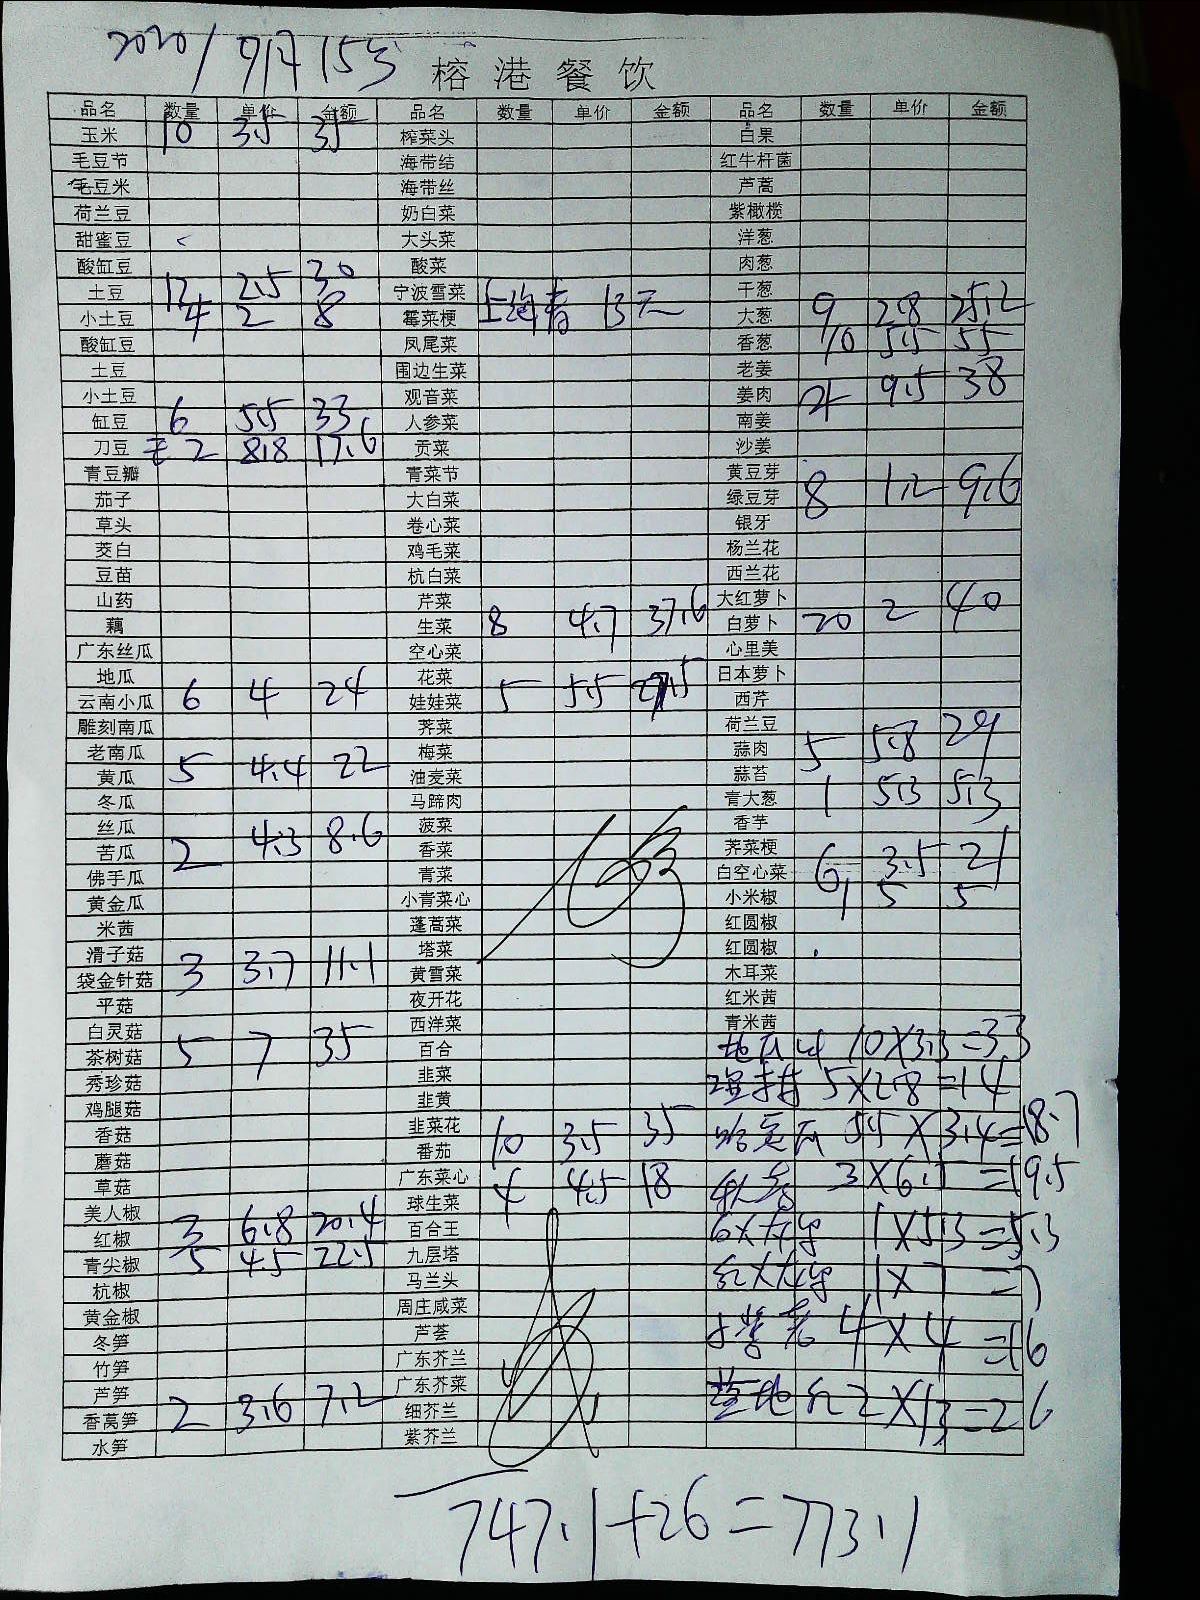 2020/9月15号
榕港餐饮
品名 数量 单价 金额 品名 数量 单价 金额 品名 数量 单价 金额
玉米 10 3.5 35 榨菜头 白果
毛豆节 海带结 红牛杆菌
毛豆米 海带丝 芦蒿
荷兰豆 奶白菜 紫橄榄
甜蜜豆 大头菜 洋葱
酸缸豆 酸菜 肉葱
土豆 12 2.5 30 宁波雪菜 上海青 13元 干葱
小土豆 4 2 8 霉菜梗 大葱 9 2.8 25.2
酸缸豆 凤尾菜 香葱 10 5.5 55
土豆 围边生菜 老姜
小土豆 观音菜 姜肉 4 9.5 38
缸豆 6 5.5 33 人参菜 南姜
刀豆 2 8.8 17.6 贡菜 沙姜
青豆瓣 青菜节 黄豆芽
茄子 大白菜 绿豆芽 8 1.2 9.6
草头 卷心菜 银牙
茭白 鸡毛菜 杨兰花
豆苗 杭白菜 西兰花
山药 芹菜 大红萝卜
藕 生菜 8 4.7 37.6 白萝卜 20 2 40
广东丝瓜 空心菜 心里美
地瓜 花菜 日本萝卜
云南小瓜 6 4 24 娃娃菜 5 5.5 27.5 西芹
雕刻南瓜 荠菜 荷兰豆
老南瓜 梅菜 蒜肉 5 5.8 29
黄瓜 5 4.4 22 油麦菜 蒜苔
冬瓜 马蹄肉 青大葱 1 5.3 5.3
丝瓜 菠菜 香芋
苦瓜 2 4.3 8.6 香菜 荠菜梗
佛手瓜 青菜 白空心菜 6 3.5 21
黄金瓜 小青菜心 小米椒 1 5 5
米茜 蓬蒿菜 红圆椒
滑子菇 塔菜 红圆椒
袋金针菇 3 3.7 11.1 黄雪菜 木耳菜
平菇 夜开花 红米茜
白灵菇 西洋菜 青米茜
茶树菇 5 7 35 百合 地瓜 10×3.3=33
秀珍菇 韭菜 5×2.8=14
鸡腿菇 韭黄
香菇 韭菜花 哈密瓜 5.5×3.4=18.7
蘑菇 番茄 10 3.5 35
草菇 广东菜心 3×6.5=19.5
美人椒 球生菜 4 4.5 18
红椒 3 6.8 20.4 百合王 1×5.3=5.3
青尖椒 5 4.5 22.5 九层塔
杭椒 马兰头 1×7=7
黄金椒 周庄咸菜
冬笋 芦荟 4×4=16
竹笋 广东芥兰
芦笋 广东芥菜
香莴笋 2 3.6 7.2 细芥兰 2×13=26
水笋 紫芥兰
747.1+26=773.1